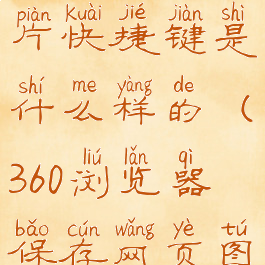 piàn kuài jié jiàn shì
片快捷键是
shí me yàng de
什么样的（
liú lǎn qì
360浏览器
bǎo cún wǎng yè tú
保存网页图